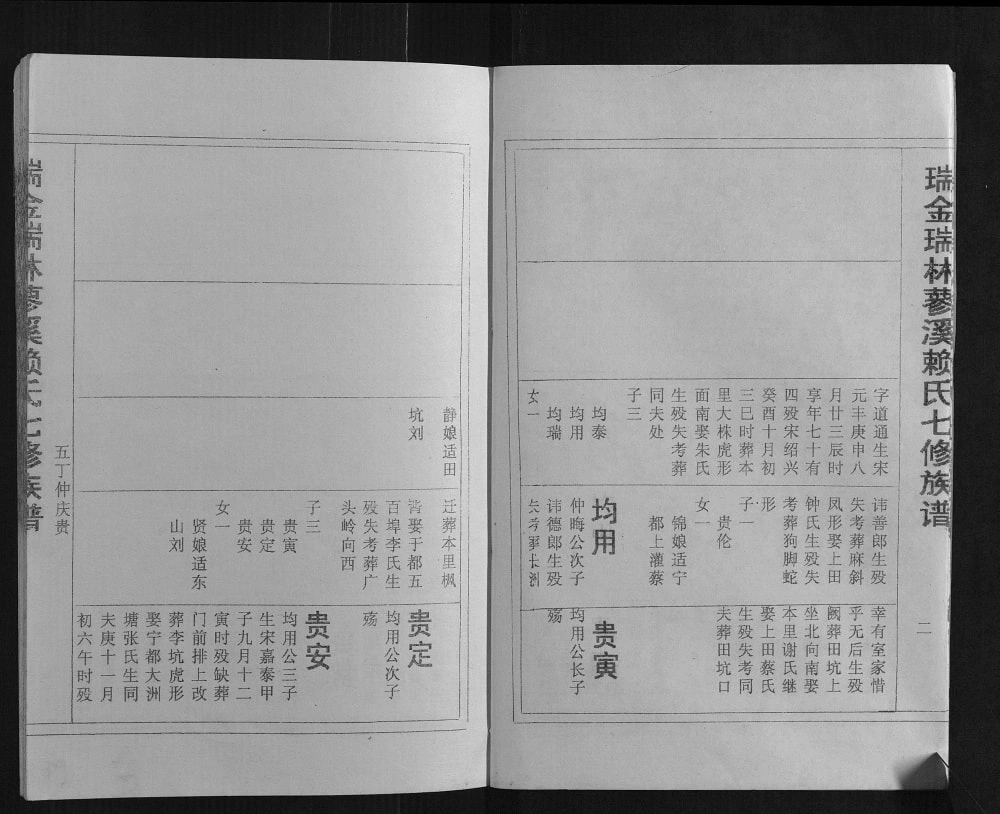 瑞金瑞林蓼溪赖氏七修族谱
二
字道通生宋
元丰庚申八
月廿三辰时
享年七十有
四殁宋绍兴
癸酉十月初
三巳时葬本
里大株虎形
面南娶朱氏
生殁失考葬
同夫处
子三
均泰
均用
均瑞
女一
讳善郎生殁
失考葬麻斜
凤形娶上田
钟氏生殁失
考葬狗脚蛇
形
子一
贵伦
女一
锦娘适宁
都上灌蔡
均用
仲晦公次子
讳德郎生殁
失考葬长洲
幸有室家惜
乎无后生殁
阙葬田坑上
坐北向南娶
本里谢氏继
娶上田蔡氏
生殁失考同
夫葬田坑口
贵寅
均用公长子
殇
静娘适田
坑刘
迁葬本里枫
背娶于都五
百埠李氏生
殁失考葬广
头岭向西
子三
贵寅
贵定
贵安
女一
贤娘适东
山刘
贵定
均用公次子
殇
贵安
均用公三子
生宋嘉泰甲
子九月十二
寅时殁缺葬
门前排上改
葬李坑虎形
娶宁都大洲
塘张氏生同
夫庚十一月
初六午时殁
五丁仲庆贵
瑞金瑞林蓼溪赖氏七修族谱